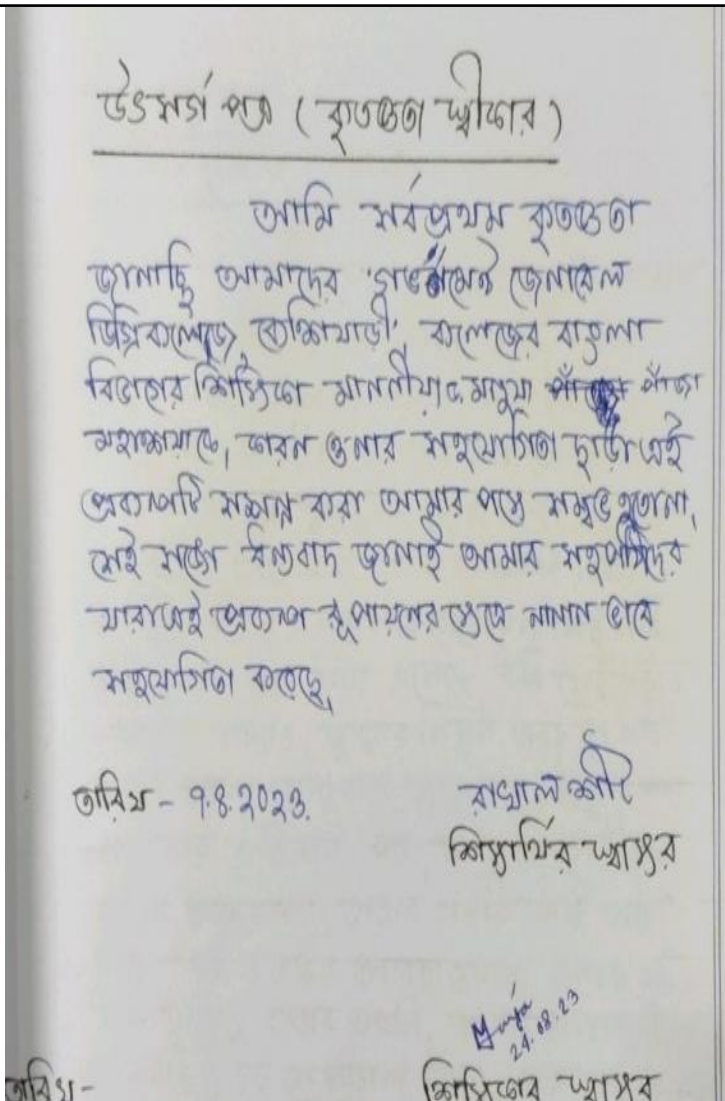 উৎসর্গ পত্র ( কৃতজ্ঞতা স্বীকার )
আমি সর্বপ্রথম কৃতজ্ঞতা
জানাচ্ছি আমাদের 'গভর্নমেন্ট জেনারেল
ডিগ্রি কলেজে, কেশিয়াড়ী', কলেজের বাঙলা
বিভাগের শিক্ষিকা মাননীয়া ড. মানুয়া পাঁজা
মহাশয়াকে, কারন ওনার সহযোগিতা ছাড়া এই
প্রকল্পটি সম্পন্ন করা আমার পক্ষে সম্ভব হতোনা,
সেই সঙ্গে ধন্যবাদ জানাই আমার সহপাঠিদের
যারা এই প্রকল্প রূপায়নের ক্ষেত্রে নানান ভাবে
সহযোগিতা করেছে,
তারিখ - ৭.৪.২০২৩.
রাখাল শীট
শিক্ষার্থির স্বাক্ষর
24.08.23
তারিখ -
শিক্ষিকার স্বাক্ষর